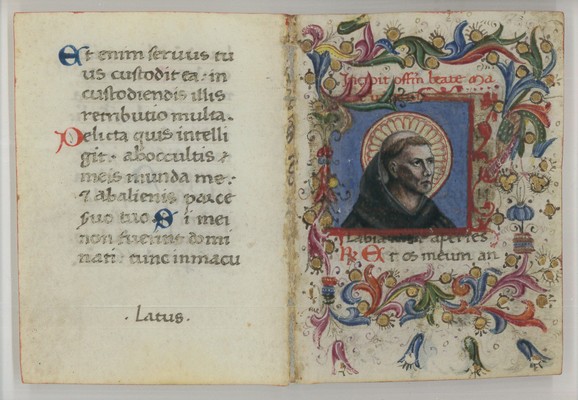 Et enim servus tu
us custodit ea: in
custodiendis illis
retributio multa.
Delicta quis intelli
git: ab occultis
meis munda me:
& ab alienis parce
servo tuo Si mei
non fuerint domi
nati: tunc inmacu
·Latus·
Incipit offm beate
Labia aperies
R. Et os meum an